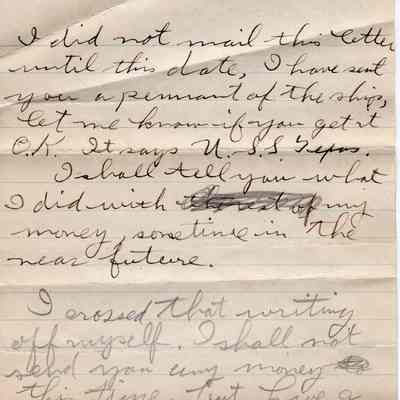 I did not mail this letter
until this date, I have sent
you a pennant of the ship,
let me know if you get it
O.K. It says U.S.S Texas.
I shall tell you what
I did with the rest of my
money, sometime in the
near future.
I crossed that writing
off myself. I shall not
send you any money
this time, but have a